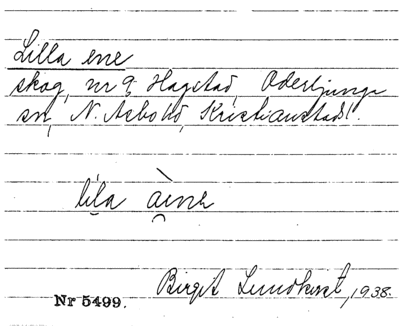 Lilla ene
skog, nr 9 Hagstad, Oderljunga
sn, N. Åsbo hd, Kristianstads l.
lila
Birgit Lundkvist, 1938.
Nr 5499.